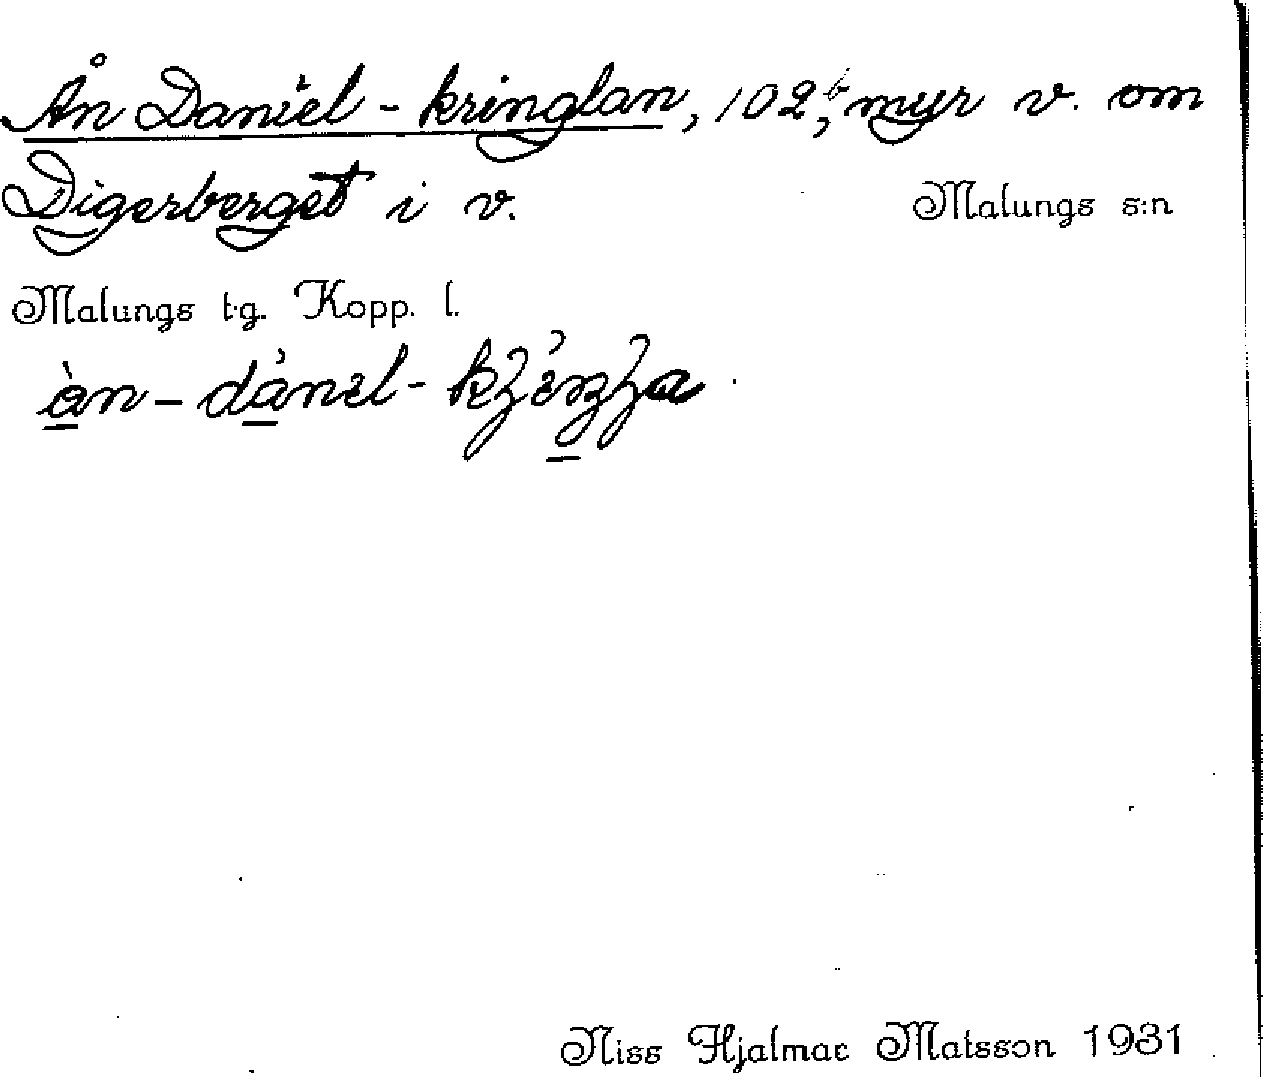 Ån Daniel-kringlan, 102, myr v. om
Digerberget i v. Malungs s:n
Malungs t.g. Kopp. l.
Niss Hjalmar Matsson 1931